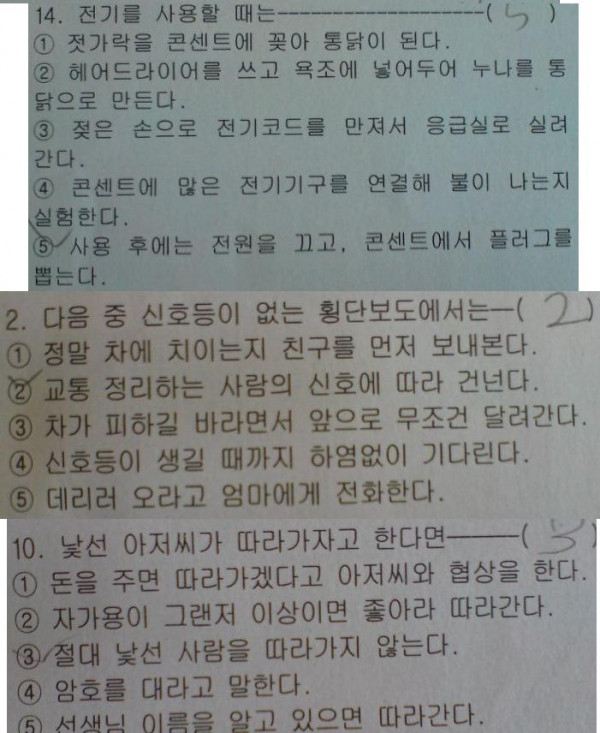 14. 전기를 사용할 때는--------------------( 5 )
① 젓가락을 콘센트에 꽂아 통닭이 된다.
② 헤어드라이어를 쓰고 욕조에 넣어두어 누나를 통
닭으로 만든다.
③ 젖은 손으로 전기코드를 만져서 응급실로 실려
간다.
④ 콘센트에 많은 전기기구를 연결해 불이 나는지
실험한다.
⑤ 사용 후에는 전원을 끄고, 콘센트에서 플러그를
뽑는다.
2. 다음 중 신호등이 없는 횡단보도에서는—( 2 )
① 정말 차에 치이는지 친구를 먼저 보내본다.
② 교통 정리하는 사람의 신호에 따라 건넌다.
③ 차가 피하길 바라면서 앞으로 무조건 달려간다.
④ 신호등이 생길 때까지 하염없이 기다린다.
⑤ 데리러 오라고 엄마에게 전화한다.
10. 낯선 아저씨가 따라가자고 한다면———( 3 )
① 돈을 주면 따라가겠다고 아저씨와 협상을 한다.
② 자가용이 그랜저 이상이면 좋아라 따라간다.
③ 절대 낯선 사람을 따라가지 않는다.
④ 암호를 대라고 말한다.
⑤ 선생님 이름을 알고 있으면 따라간다.